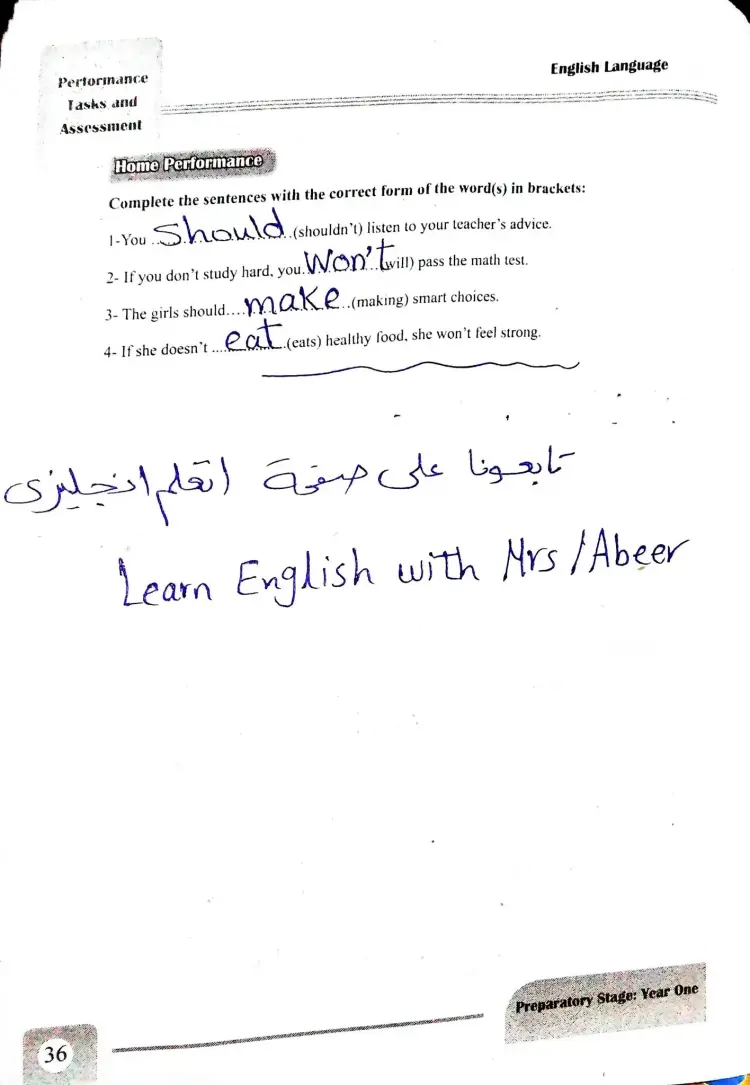 English Language
Performance
Tasks and
Assessment
Home Performance
Complete the sentences with the correct form of the word(s) in brackets:
1-You ..Should..(shouldn't) listen to your teacher's advice.
2- If you don't study hard, you.Won't...(will) pass the math test.
3- The girls should....make...(making) smart choices.
4- If she doesn't ....eat....(eats) healthy food, she won't feel strong.
تابعونا على صفحة (اتعلم انجليزى
Learn English with Mrs/Abeer
Preparatory Stage: Year One
36